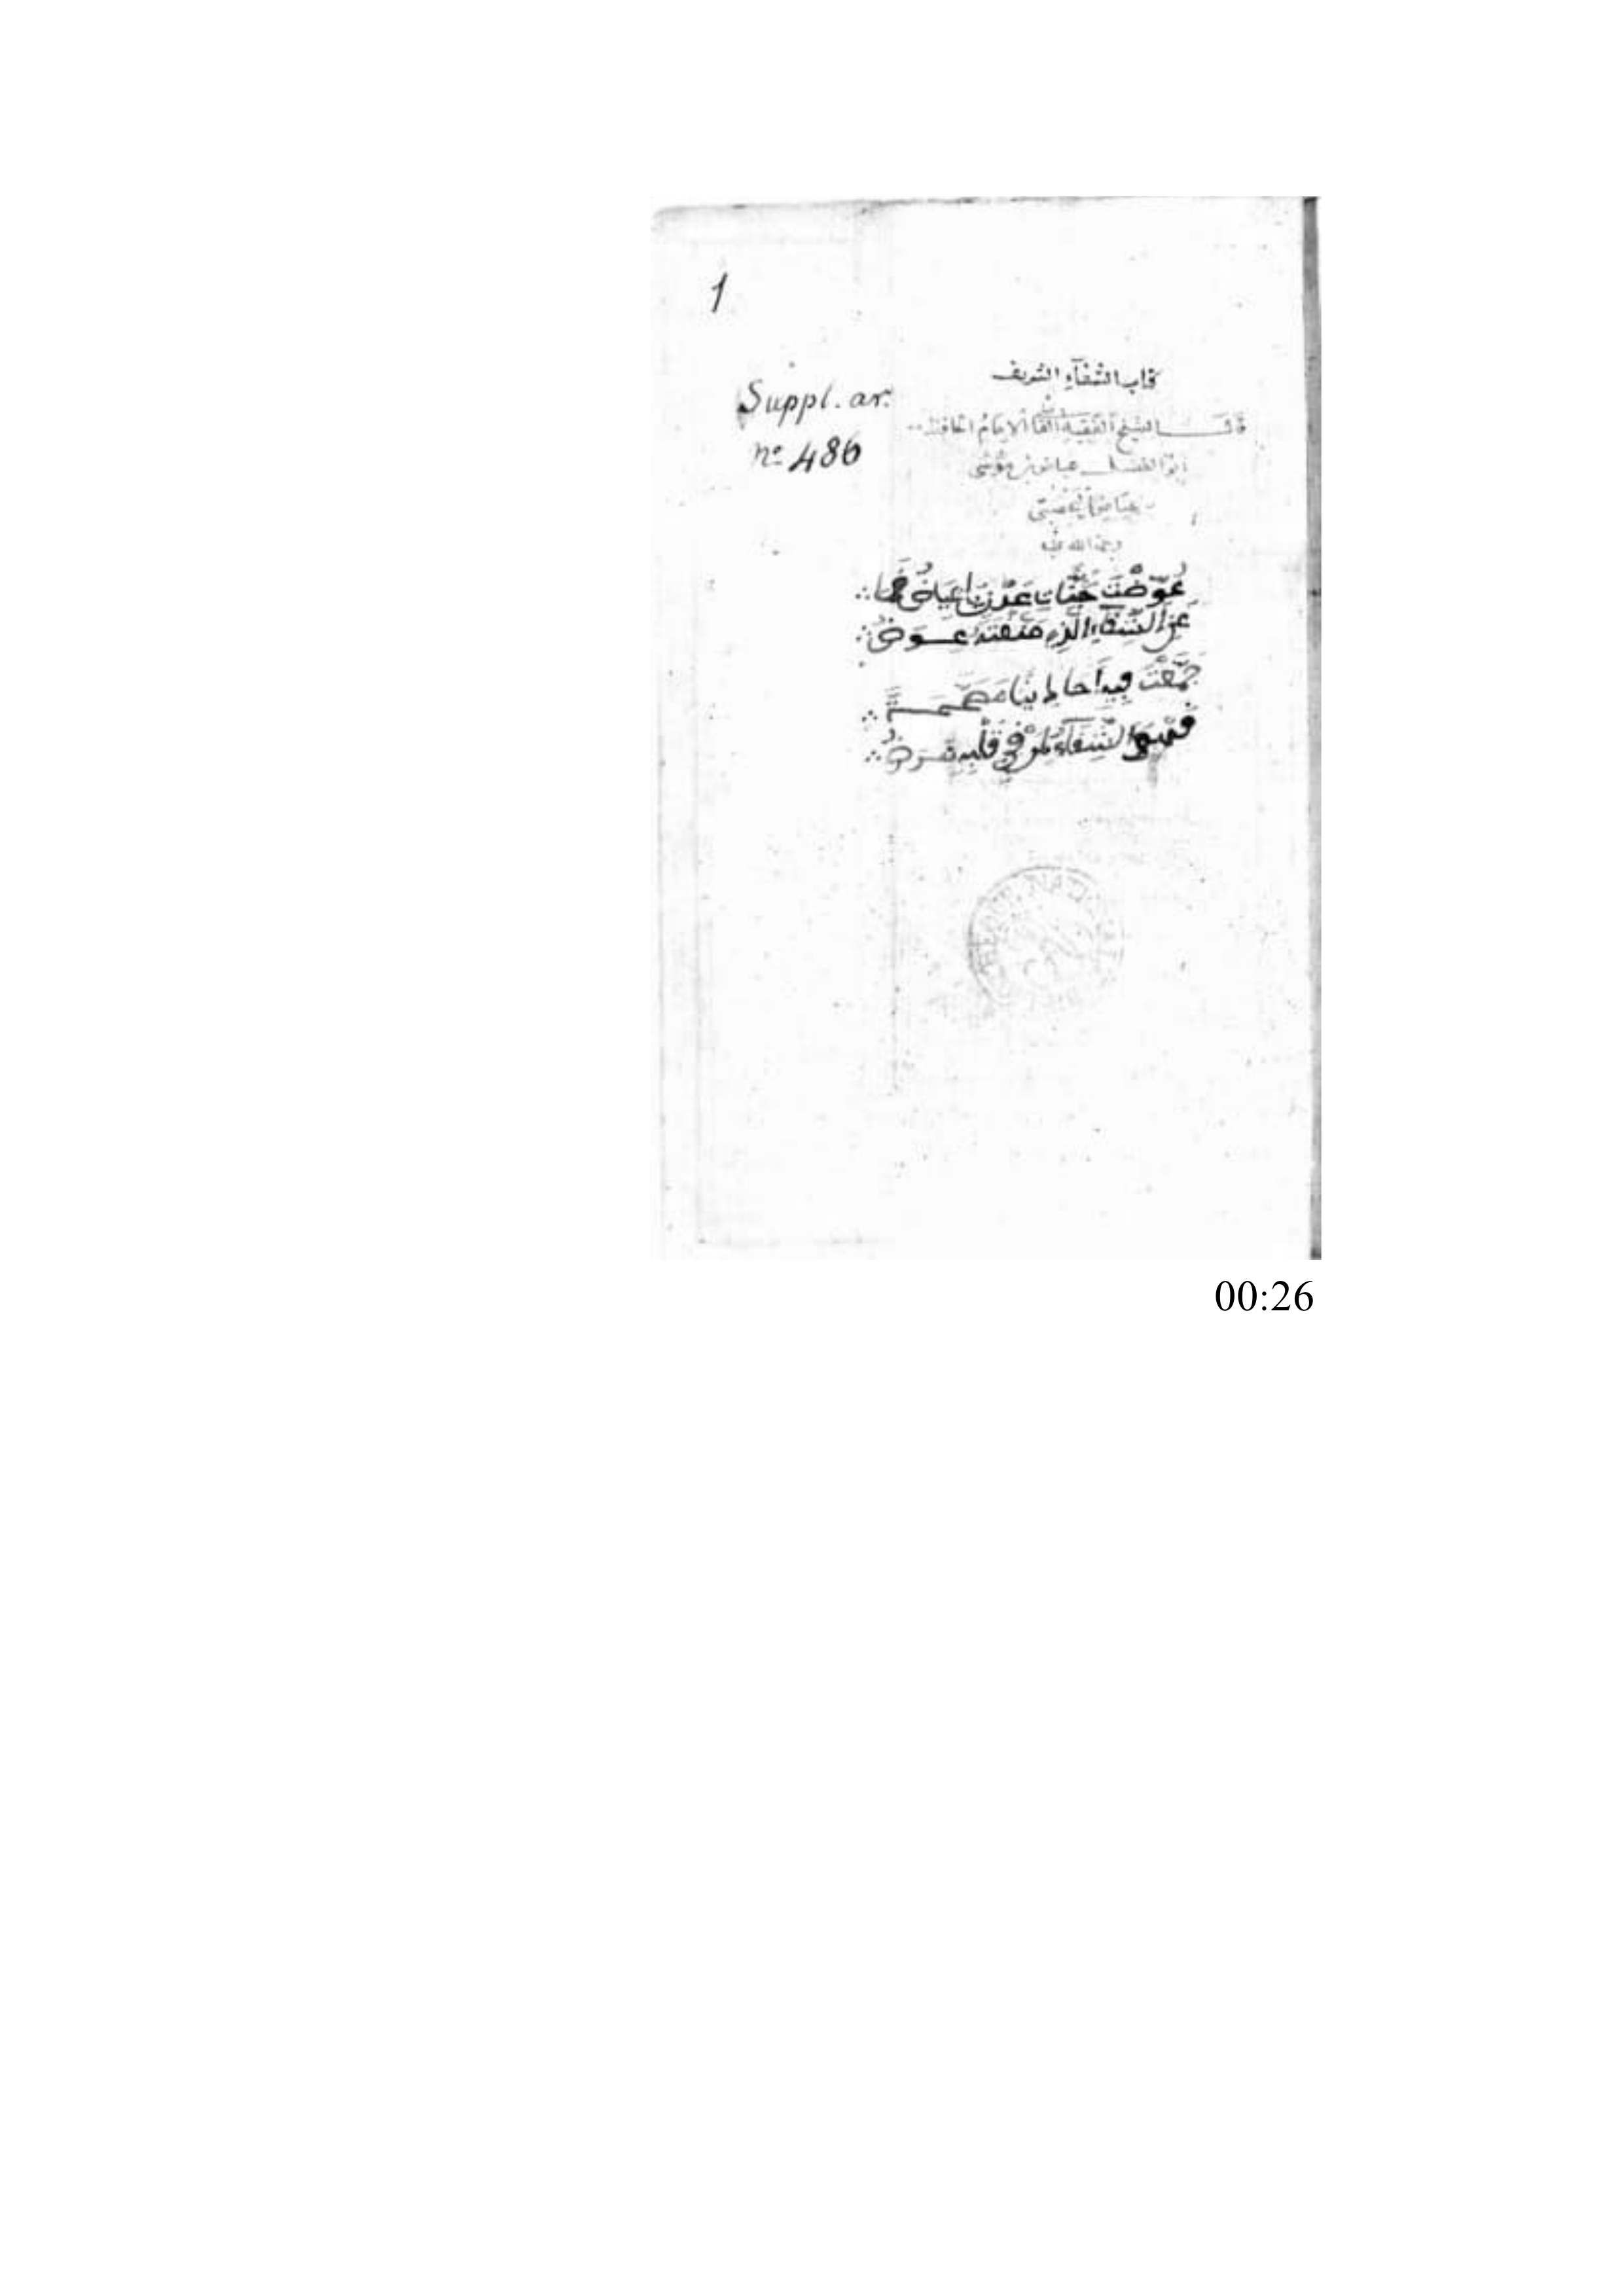 1
Suppl. ar.
nº 486
كتاب الشفآء الشريف
قال الشيخ الفقيه القاضى الامام الحافظ
ابو الفضل عياض بن موسى
بن عياض اليحصبى
رحمه الله
عُوِّضْتَ جَنَّاتِ عَدْنٍ يَا عِيَاضُ كَمَا
عَنِ الشِّفَآءِ الَّذِي عِوَضُ
جَمَّعْتَ فِيهِ أَحَادِيثًا مُصَحَّحَةً
الشِّفَآءُ لِمَنْ فِي قَلْبِهِ مَرَضُ
00:26